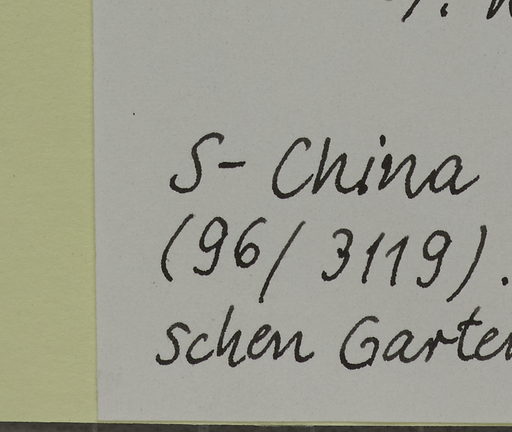 S- China
(96/3119).
schen Garten